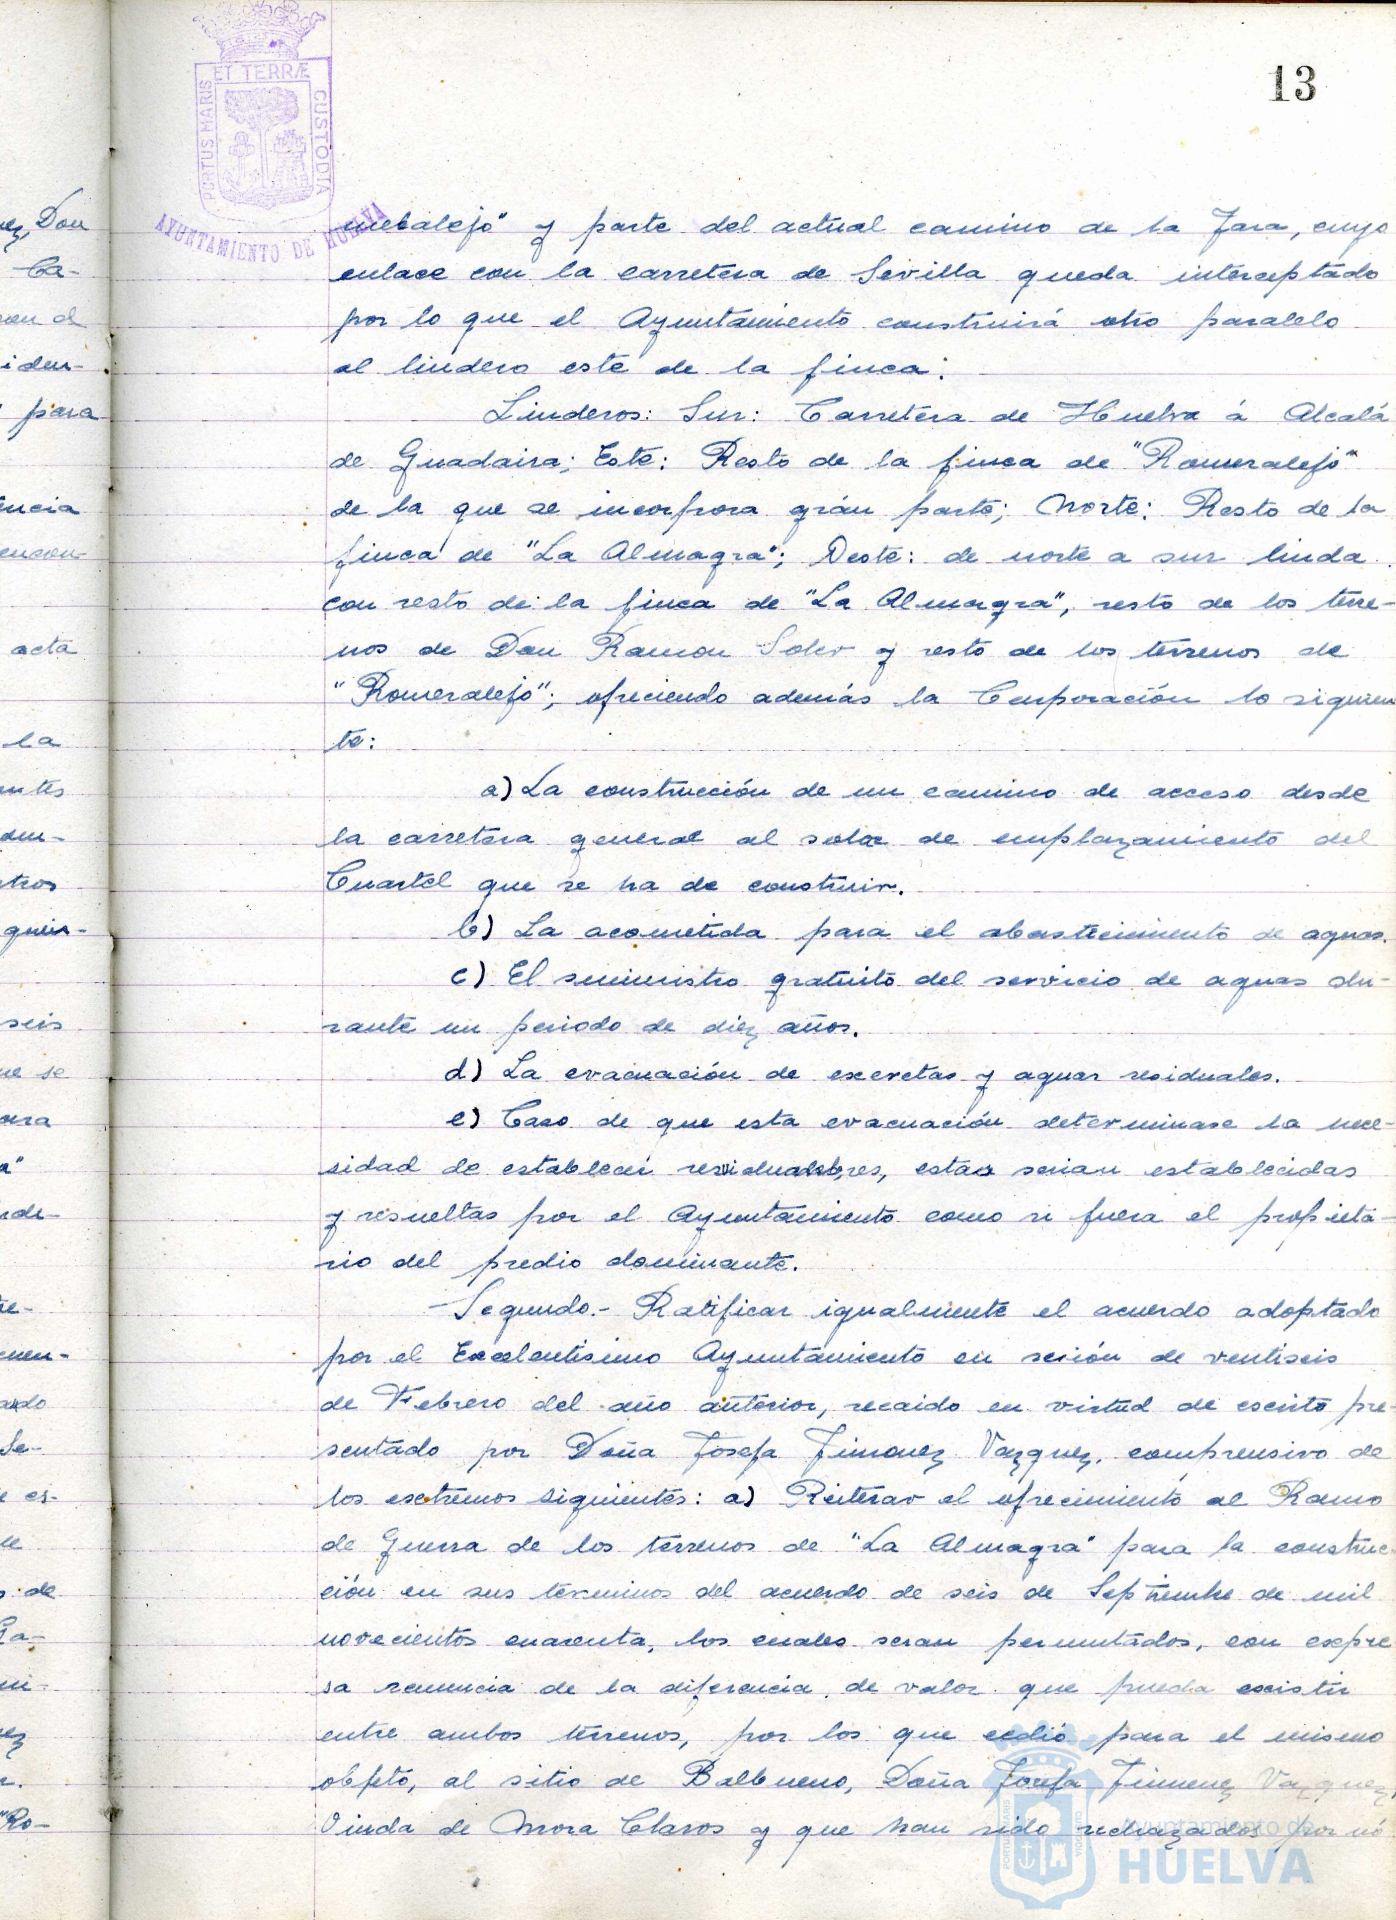 13
PORTUS MARIS ET TERRÆ CUSTODIA
AYUNTAMIENTO DE HUELVA
meralejo" y parte del actual camino de la Jara, cuyo
enlace con la carretera de Sevilla queda interceptado
por lo que el Ayuntamiento construirá otro paralelo
al lindero este de la finca:
Linderos: Sur: Carretera de Huelva á Alcalá
de Guadaira; Este: Resto de la finca de "Romeralejo"
de la que se incorpora grán parte; Norte: Resto de la
finca de "La Almagra"; Oeste: de norte a sur linda
con resto de la finca de "La Almagra", resto de los terre-
nos de Don Ramon Soler y resto de los terrenos de
"Romeralejo"; ofreciendo además la Corporación lo siguien
te:
a) La construcción de un camino de acceso desde
la carretera general al solar de emplazamiento del
Cuartel que se ha de construir.
b) La acometida para el abastecimiento de aguas.
c) El suministro gratuito del servicio de aguas du-
rante un periodo de diez años.
d) La evacuación de excretas y aguas residuales.
e) Caso de que esta evacuación determinase la nece-
sidad de establecer, estas serian establecidas
y resueltas por el Ayuntamiento como si fuera el propieta-
rio del predio dominante.
Segundo.- Ratificar igualmente el acuerdo adoptado
por el Excelentisimo Ayuntamiento en sesión de ventiseis
de Febrero del año anterior, recaido en virtud de escrito pre-
sentado por Doña Josefa Jimenez Vazquez, comprensivo de
los extremos siguientes: a) Reiterar el ofrecimiento al Ramo
de Guerra de los terrenos de "La Almagra" para la construc-
ción en sus terminos del acuerdo de seis de Septiembre de mil
novecientos cuarenta, los cuales seran permutados, con expre
sa renuncia de la diferencia de valor que pueda existir
entre ambos terrenos, por los que cedió para el mismo
objeto, al sitio de Balbueno, Doña Josefa Jimenez Vazquez,
Viuda de Mora Claros y que han sido rechazados por nó
Ayuntamiento de
HUELVA
uez, Don
Ca-
iden-
para
encia
acta
la
seis
ue se
de
"Ro-